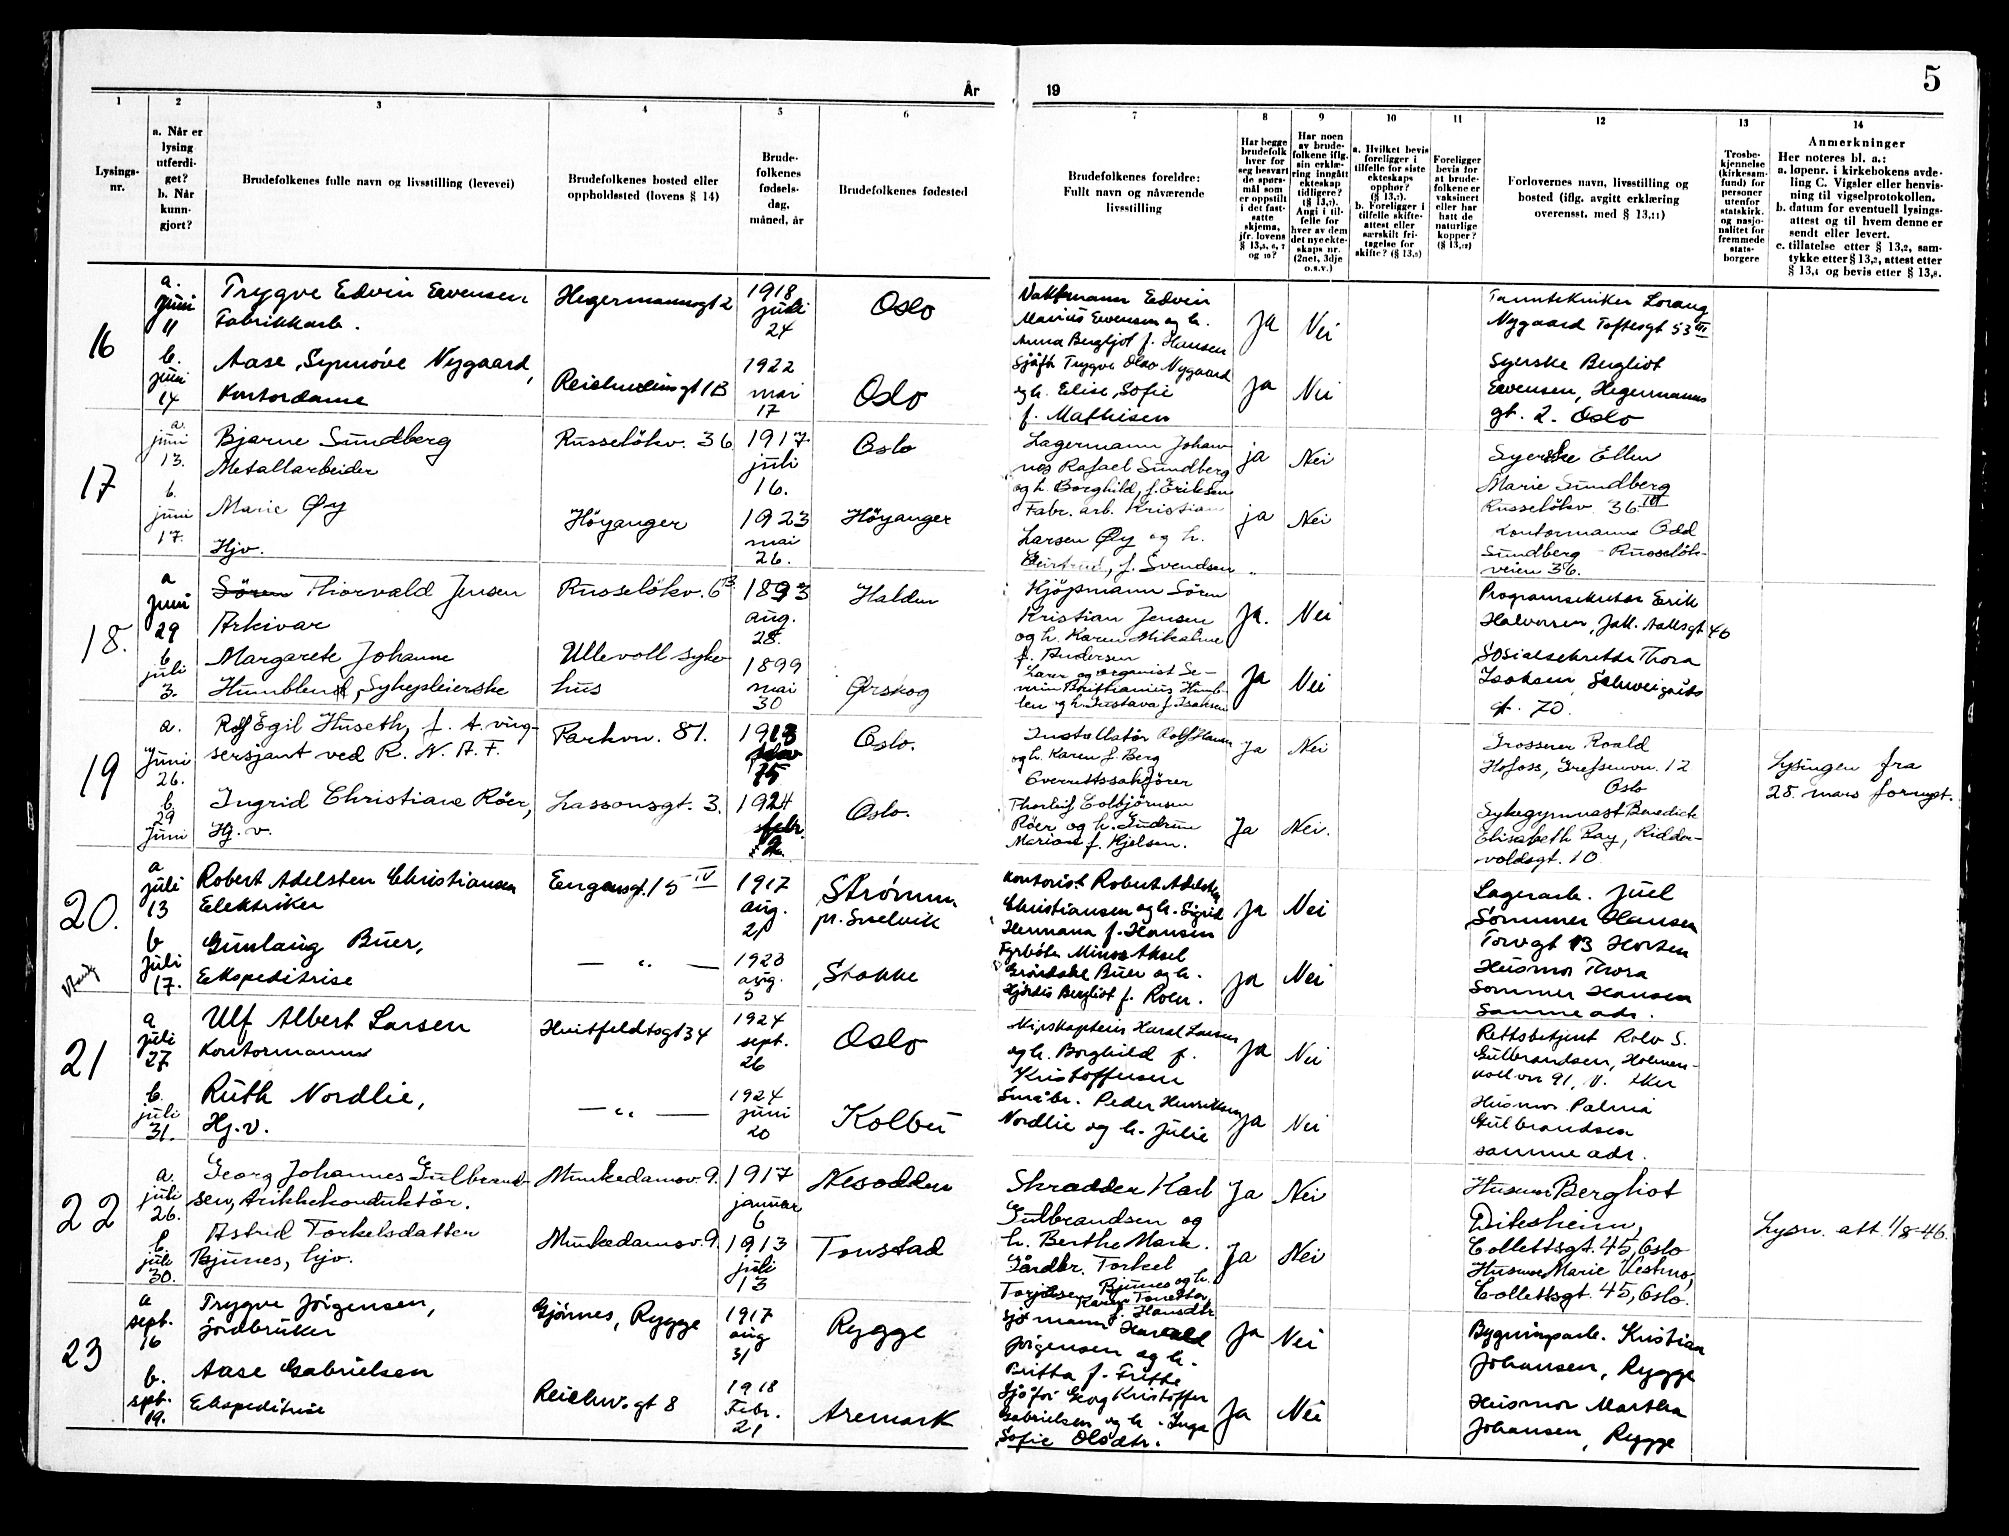 År 19
5
1 2 3 4 5 6 7 8 9 10 11 12 13 14
Lysings-
nr.
a. Når er
lysing
utferdi-
get?
b. Når
kunn-
gjort?
Brudefolkenes fulle navn og livsstilling (levevei)
Brudefolkenes bosted eller
oppholdssted (lovens § 14)
Brude-
folkenes
fødsels-
dag,
måned, år
Brudefolkenes fødested
Brudefolkenes foreldre:
Fullt navn og nåværende
livsstilling
Har begge
brudefolk
hver for
seg besvart
de spørs-
mål som
er oppstilt
i det fast-
satte
skjema,
jfr. lovens
og 10?
Har noen
av brude-
folkene iflg.
sin erklæ-
ring inngått
ekteskap
tidligere?
Angi i til-
felle for
hver av dem
det nye ekte-
skaps nr.
(2net, 3dje
o.s.v.)
a. Hvilket bevis
foreligger i
tilfelle for siste
ekteskaps
opphør?
b. Foreligger i
tilfelle skifte-
attest eller
særskilt fri-
tagelse for
skifte?
Foreligger
bevis for
at brude-
folkene er
vaksinert
eller har
hatt de
naturlige
kopper?
Forlovernes navn, livsstilling og
bosted (iflg. avgitt erklæring
overensst. med § 13,11)
Trosbe-
kjennelse
(kirkesam-
fund) for
personer
utenfor
statskirk.
og nasjo-
nalitet for
fremmede
stats-
borgere
Anmerkninger
Her noteres bl. a.:
a. løpenr. i kirkebokens avde-
ling C. Vigsler eller henvis-
ning til vigselprotokollen.
b. datum for eventuell lysings-
attest og til hvem denne er
sendt eller levert.
c. tillatelse etter § 13,2, sam-
tykke etter § 13,3, attest etter
§ 13,4 og bevis etter § 13,8.
16
a.
juni
11
Trygve Edvin Evensen
Fabrikkarb.
Hegermannsgt 2
1918
juli
24
Oslo
Vaktmann Edvin
Marius Evensen og h.
Anna Bergljot f. Hansen
Ja
Nei
Tanntekniker Lorang
Nygaard Toftesgt 53 III
b.
juni
14
Aase Synnöve Nygaard,
Kontordame
1922
mai
17
Oslo
Sjåfør Trygve Olav Nygaard
og h. Elise Sofie
f. Mathisen
Ja
Nei
Syerske Bergliot
Evensen, Hegermanns
gt. 2. Oslo
17
a.
juni
13.
Bjarne Sundberg
Metallarbeider
Russelökv. 36
1917
juli
16.
Oslo
Lagermann Johan-
nes Rafael Sundberg
og h. Borghild, f. Eriksen
ja
Nei
Syerske Ellen
Marie Sundberg
Russelökv. 36 III
b.
juni
17.
Marie Øy
Hjv.
Höyanger
1923
mai
26.
Höyanger
Fabr. arb. Kristian
Larsen Øy og h.
f. Svendsen
ja
Nei
Kontormann Odd
Sundberg - Russelök-
veien 36.
18.
a
juni
29
Sören Thorvald Jensen
Arkivar
Russelökv. 6 B
1893
aug.
28.
Halden
Kjöpmann Sören
Kristian Jensen
og h. Karen Mikaline
f. Andersen
Ja.
Nei
Programsekretær Erik
Halvorsen, Jak. Aallsgt 40
b
juli
3.
Margarete Johanne
Humblen, Sykepleierske
Ullevoll syke-
hus
1899
mai
30
Ørskog
Lærer og organist Se-
verin Humb-
len og h. Gustava f. Isaksen
Ja
Nei
Sosialsekretær Thora
Isaksen, Schweigaards
gt. 70.
19
a.
Juni
26.
Rolf Egil Huseth, f. A. ving-
sersjant ved R. N. A. F.
Parkvn. 81.
15
Oslo.
Installatör Rolf
og h. Karen f. Berg
Ja
Nei
Grosserer Roald
Hofoss, Grefsenvn. 12
Oslo
Lysingen fra
28. mars fornyet.
b.
29
Juni
Ingrid Christiane Röer,
Hj. v.
Lassonsgt. 3.
1924
febr.
Oslo.
Overrettssakförer
Thorleif Eoldbjörnsen
Röer og h. Gudrun
Marian f. Hjelsen.
Ja
Nei.
Sykegymnast Benedicte
Elisabeth Ray, Ridder-
voldsgt. 10
20.
a
juli
13
Robert Adelsten Christiansen
Elektriker
Eugensgt. 15 IV
1917
aug.
21
Strömm
pr. Svelvik
Kontorist Robert Adelsten
Christiansen og h. Sigrid
Hermana f. Hansen
Ja
Nei
Lagerarb. Juel
Sommer Hansen
Torvgt 13 Horten
b
Juli
17.
Gunlaug Buer,
Ekspeditrise
— " —
1923
aug.
5
Stokke
Fyrböter Minos Aksel
Buer og h.
Hjördis Bergliot f. Roer.
Ja
Nei
Husmor Thora
Sommer Hansen
Samme adr.
21
a
juli
27
Ulf Albert Larsen
Kontormann
Huitfeldtsgt 34
1924
sept.
26
Oslo
Skipskaptein Harald Larsen
og h. Borghild f.
Kristoffersen
Ja
Nei
Rettsbetjent Rolv S.
Gulbrandsen, Holmen-
kollvn 91, V. Aker
b.
juli
31.
Ruth Nordlie,
Hj. v.
— " —
1924
juni
20
Kolbu
Småbr. Peder Henriksen
Nordlie og h. Julie
Ja
Nei
Husmor Palma
Gulbrandsen
samme adr.
22
a.
juli
26.
Georg Johannes Gulbrand-
sen, trikkekonduktör.
Munkedamsv. 9.
1917
januar
6
Nesodden
Skredder Karl
Gulbrandsen og
h. Berthe Marie.
Ja
Nei
Husmor Bergliot
Ditesheim,
Collettsgt. 45, Oslo
Lysn. att. 1/8-46.
b.
juli
30.
Astrid Torkelsdatter
Bjunes, hjv.
Munkedamsv. 9.
1913
juli
13
Tonstad
Gårdbr. Torkel
Torjusen Bjunes og h.
Karen Tonette
f. Hansdtr
Ja
Nei
Husmor Marie Vestmo,
Collettsgt. 45, Oslo.
23
a
sept.
16
Trygve Jörgensen,
jordbruker
Gjönnes, Rygge
1917
aug
31
Rygge
Sjömann Harald
Jörgensen og h.
Britta f. Fritbe
Ja
Nei
Bygningsarb. Kristian
Johansen, Rygge
b.
sept.
19.
Aase Gabrielsen
Ekspeditrise
Reichw. gt 8
1918
Febr.
21
Aremark
Sjåför Georg Kristoffer
Gabrielsen og h. Inga
Sofie Olsdtr.
Ja
Nei
Husmor Martha
Johansen, Rygge